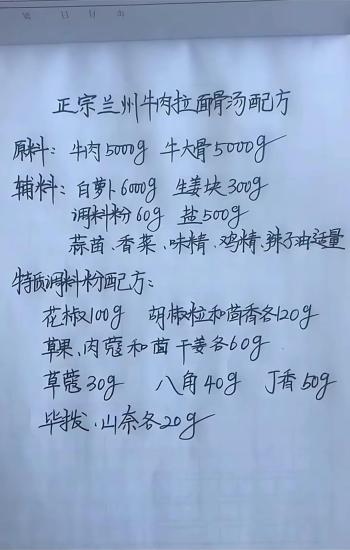 正宗兰州牛肉拉面骨汤配方
原料: 牛肉5000g 牛大骨5000g
辅料: 白萝卜6000g 生姜块300g
调料粉60g 盐500g
蒜苗、香菜、味精、鸡精、辣子油适量
特质调料粉配方:
花椒100g 胡椒粒和茴香各120g
草果、肉蔻和茴干姜各60g
草蔻30g 八角40g 丁香50g
毕拨、山奈各20g